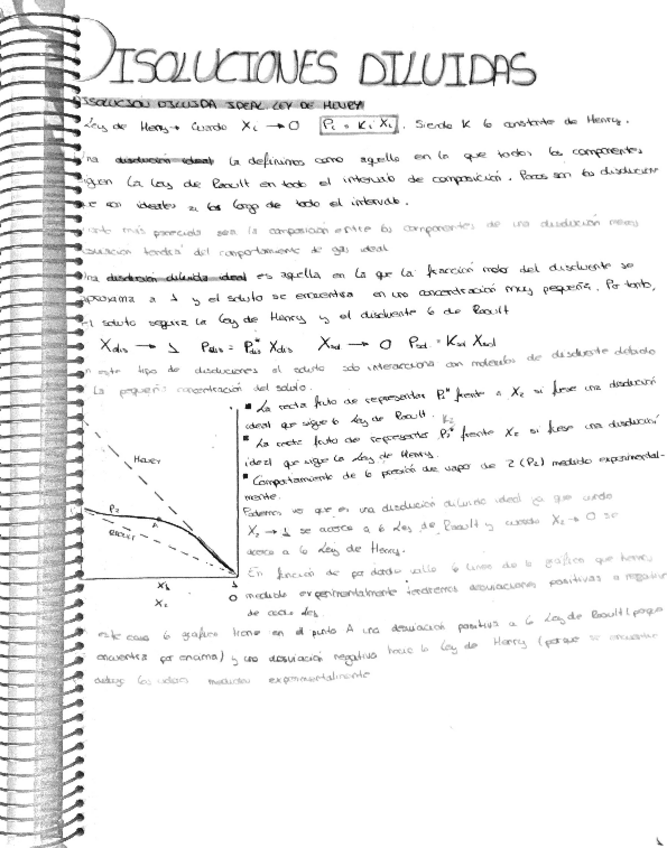 DISOLUCIONES DILUIDAS
DISOLUCIÓN DILUIDA IDEAL LEY DE HENRY
Ley de Henry → Cuando Xi → 0 Pi = Ki Xi . Siendo K la constante de Henry.
una disolución ideal la definimos como aquella en la que todos los componentes
siguen la Ley de Raoult en todo el intervalo de composición. Pocas son las disoluciones
que son ideales a lo largo de todo el intervalo.
más parecida sea la composición entre los componentes de una disolución menos
desviación tendrá del comportamiento de gas ideal
una disolución diluida ideal es aquella en la que la fracción molar del disolvente se
aproxima a 1 y el soluto se encuentra en una concentración muy pequeña. Por tanto,
el soluto seguirá la Ley de Henry y el disolvente la de Raoult
Xdis → 1 Pdis = P*dis Xdis Xsol → 0 Psol = Ksol Xsol
en este tipo de disoluciones el soluto solo interacciona con moléculas de disolvente debido
a la pequeña concentración del soluto.
▪ La recta fruto de representar Pi* frente a X2 si fuese una disolución
ideal que sigue la Ley de Raoult.
▪ La recta fruto de representar frente X2 si fuese una disolución
ideal que sigue la Ley de Henry.
▪ Comportamiento de la presión de vapor de 2 (P2) medido experimental-
mente.
Podemos ver que es una disolución diluida ideal ya que cuando
X2 → 1 se acerca a la Ley de Raoult y cuando X2 → 0 se
acerca a la Ley de Henry.
HENRY
P2
A
RAOULT
X1 1
X2 0
En función de por donde vaya la línea de la gráfica que hemos
medido experimentalmente tendremos desviaciones positivas o negativas
de cada Ley.
este caso la gráfica tiene en el punto A una desviación positiva a la Ley de Raoult (porque
encuentra por encima) y una desviación negativa hacia la Ley de Henry (porque se encuentra
debajo) los valores medidos experimentalmente